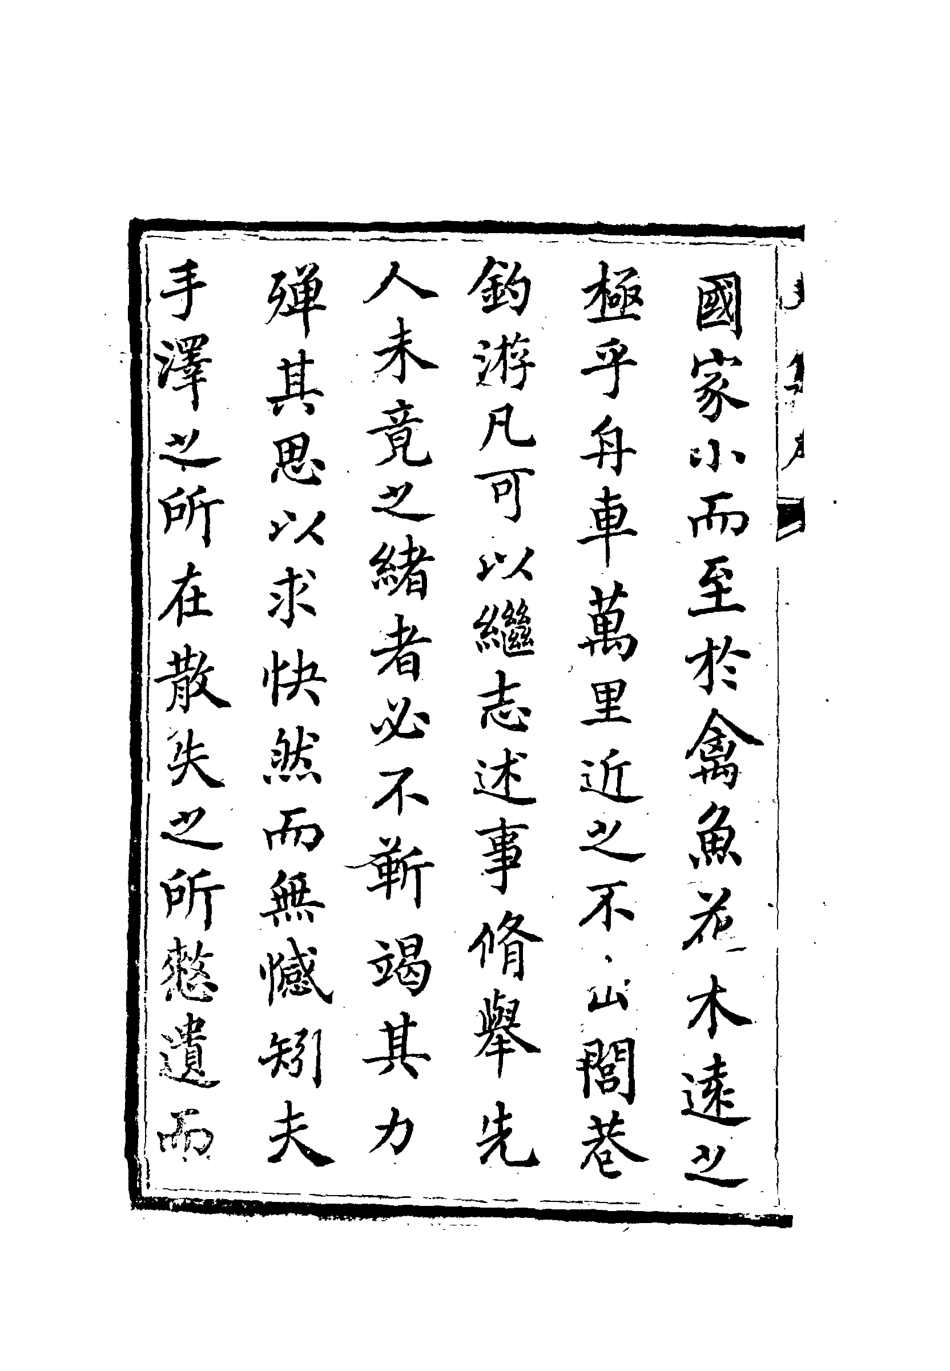 國家小而至於禽魚花木遠之
極乎舟車萬里近之不出閭巷
釣游凡可以繼志述事脩舉先
人未竟之緒者必不靳竭其力
殫其思以求快然而無憾矧夫
手澤之所在散失之所慭遺而